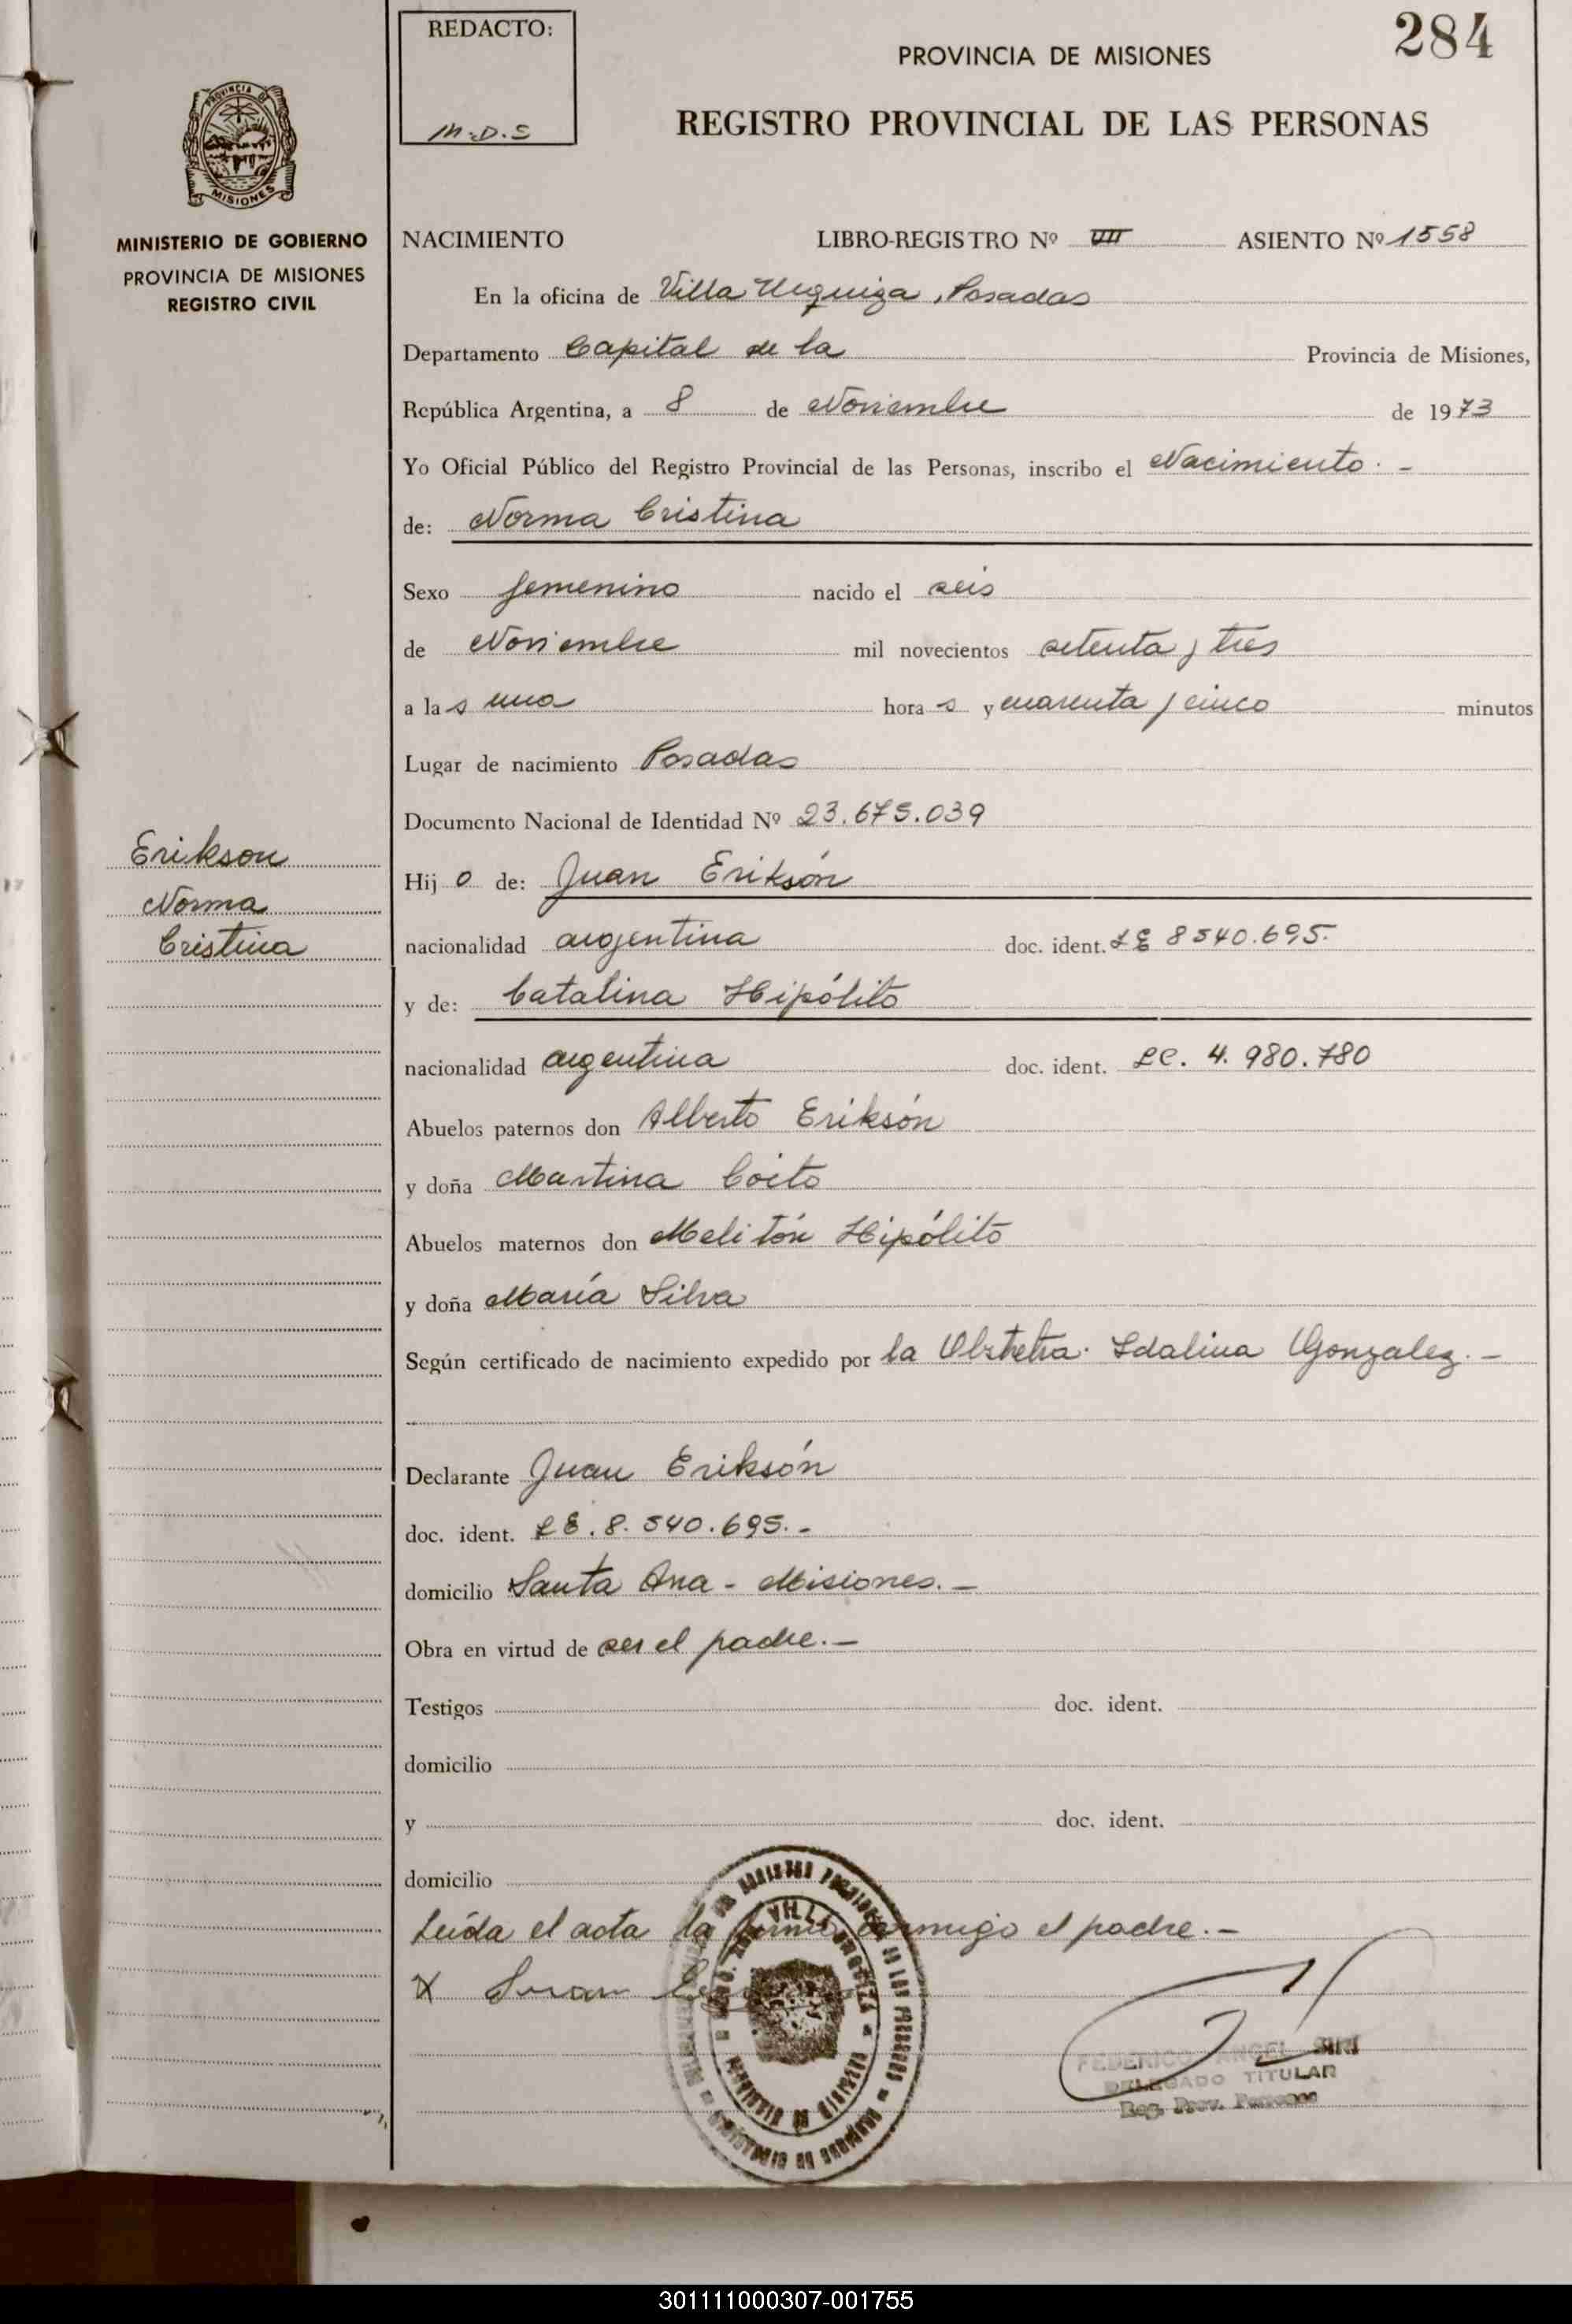 REDACTO:
M.D.S
284
PROVINCIA DE MISIONES
REGISTRO PROVINCIAL DE LAS PERSONAS
PROVINCIA DE
MISIONES
MINISTERIO DE GOBIERNO
PROVINCIA DE MISIONES
REGISTRO CIVIL
NACIMIENTO LIBRO-REGISTRO Nº VIII ASIENTO Nº 1558
En la oficina de Villa Urquiza, Posadas
Departamento Capital de la Provincia de Misiones,
República Argentina, a 8 de Noviembre de 1973
Yo Oficial Público del Registro Provincial de las Personas, inscribo el Nacimiento. -
de: Norma Cristina
Sexo femenino nacido el seis
de Noviembre mil novecientos setenta y tres
a las una horas y cuarenta y cinco minutos
Lugar de nacimiento Posadas
Documento Nacional de Identidad Nº 23.675.039
Erikson
Norma
Cristina
Hijo de: Juan Eriksón
nacionalidad argentina doc. ident. LE 8540.695.
y de: Catalina Hipólito
nacionalidad argentina doc. ident. LC. 4.980.780
Abuelos paternos don Alberto Eriksón
y doña Martina Coito
Abuelos maternos don Melitón Hipólito
y doña María Silva
Según certificado de nacimiento expedido por la Obstetra. Idalina Gonzalez. -
Declarante Juan Eriksón
doc. ident. LE. 8.540.695. -
domicilio Santa Ana - Misiones. -
Obra en virtud de ser el padre. -
Testigos doc. ident.
domicilio
y doc. ident.
domicilio
Leída el acta la firma conmigo el padre. -
X Juan
FEDERICO ANGEL SIRI
DELEGADO TITULAR
Reg. Prov. Personas
301111000307-001755